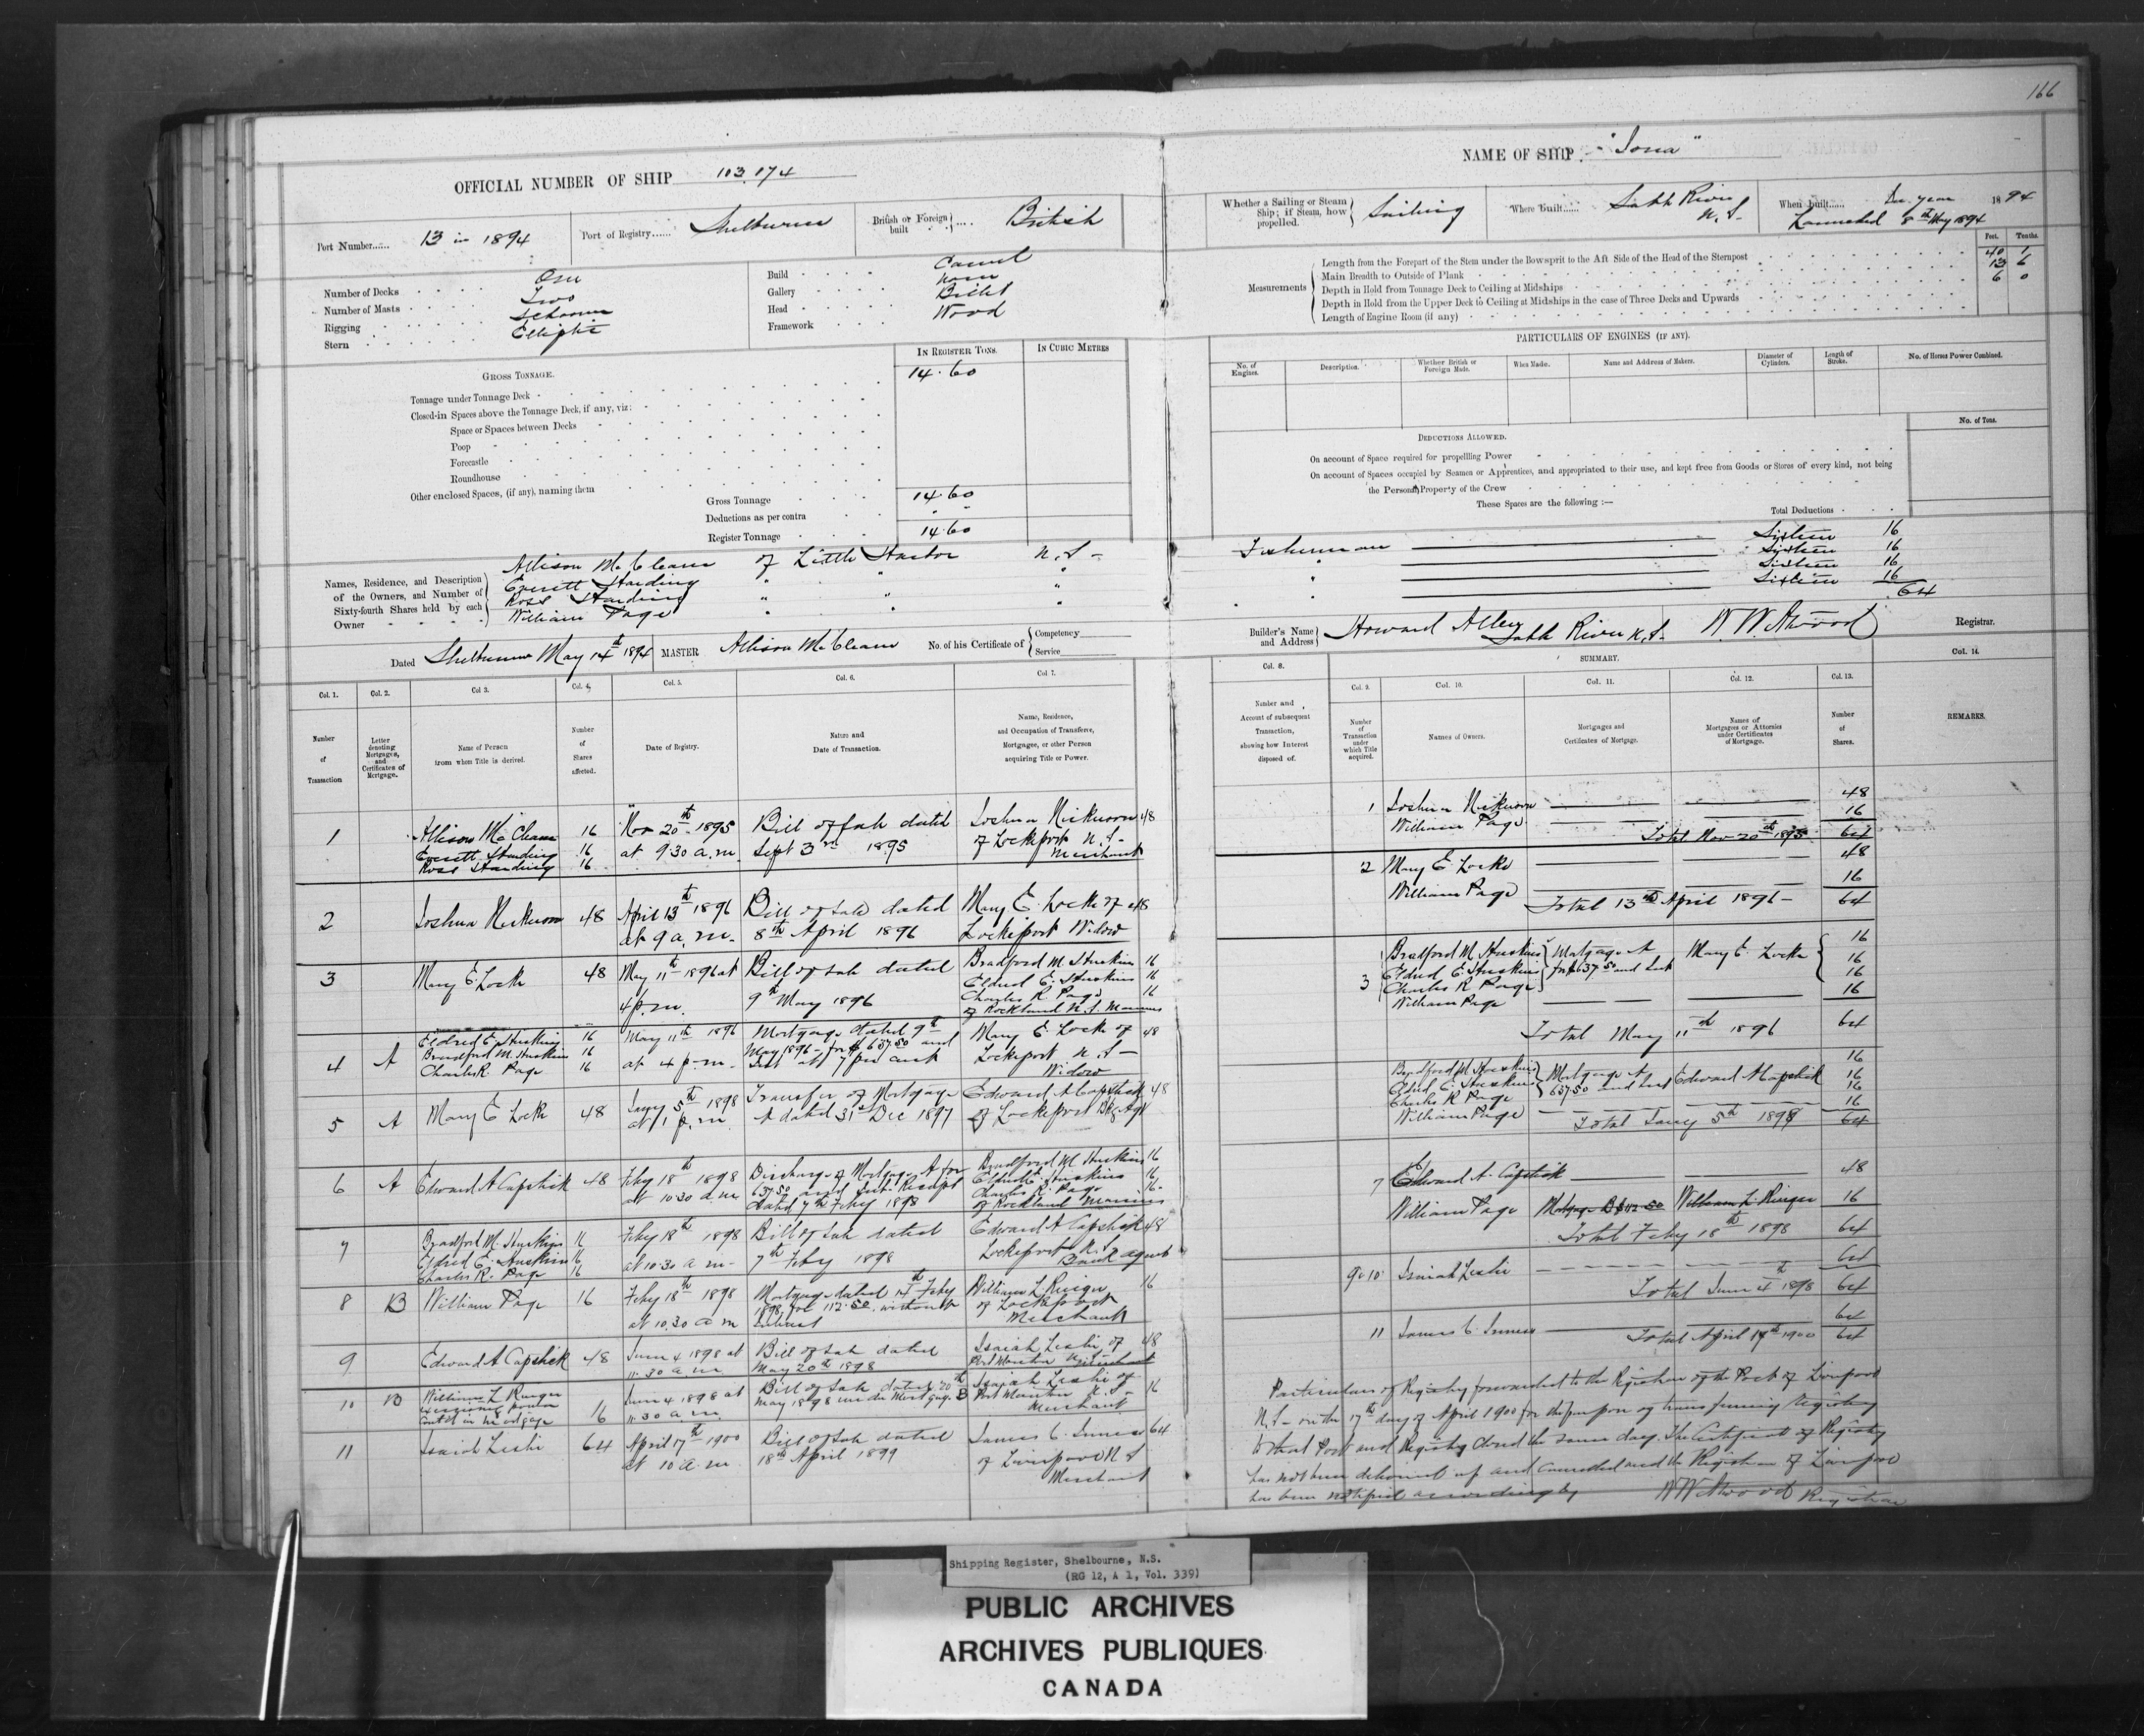 166
OFFICIAL NUMBER OF SHIP 103.174
NAME OF SHIP "Iona"
Port Number...... 13 in 1894
Port of Registry...... Shelburne
British or Foreign built .... British
Whether a Sailing or Steam Ship; if Steam, how propelled. Sailing
Where Built...... Sable River N.S.
When built...... In year 1894
Launched 8th May 1894
Number of Decks One
Number of Masts Two
Rigging Schooner
Stern Elliptic
Build Carvel
Gallery None
Head Billet
Framework Wood
Measurements
Feet. Tenths.
Length from the Forepart of the Stem under the Bowsprit to the Aft Side of the Head of the Sternpost 40 1
Main Breadth to Outside of Plank 13 6
Depth in Hold from Tonnage Deck to Ceiling at Midships 6 0
Depth in Hold from the Upper Deck to Ceiling at Midships in the case of Three Decks and Upwards
Length of Engine Room (if any)
GROSS TONNAGE.
IN REGISTER TONS.
IN CUBIC METRES
Tonnage under Tonnage Deck 14.60
Closed-in Spaces above the Tonnage Deck, if any, viz:
Space or Spaces between Decks
Poop
Forecastle
Roundhouse
Other enclosed Spaces, (if any), naming them
Gross Tonnage 14.60
Deductions as per contra - -
Register Tonnage 14.60
PARTICULARS OF ENGINES (IF ANY).
No. of Engines.
Description.
Whether British or Foreign Made.
When Made.
Name and Address of Makers.
Diameter of Cylinders.
Length of Stroke.
No. of Horses Power Combined.
DEDUCTIONS ALLOWED.
No. of Tons.
On account of Space required for propellling Power
On account of Spaces occupied by Seamen or Apprentices, and appropriated to their use, and kept free from Goods or Stores of every kind, not being
the Personal Property of the Crew
These Spaces are the following :—
Total Deductions
Names, Residence, and Description of the Owners, and Number of Sixty-fourth Shares held by each Owner
Allison McCleans of Little Harbor N.S- Fisherman Sixteen 16
Everett Harding " " " " Sixteen 16
Ross Harding " " " " Sixteen 16
William Page " " " " Sixteen 16
64
Dated Shelburne May 14th 1894
MASTER Allison McCleans
No. of his Certificate of Competency
Service
Builder's Name and Address Howard Alley Sable River N.S. W W Atwood Registrar.
Col. 1. Col. 2. Col. 3. Col. 4. Col. 5. Col. 6. Col. 7.
Number of Transaction
Letter denoting Mortgages, and Certificates of Mortgage.
Name of Person from whom Title is derived.
Number of Shares affected.
Date of Registry.
Nature and Date of Transaction.
Name, Residence, and Occupation of Transferee, Mortgagee, or other Person acquiring Title or Power.
1 Allison McCleans 16 Nov 20th 1895 Bill of Sale dated Joshua Nickerson 48
Everett Harding 16 at 9.30 a.m. Sept 3rd 1895 of Lockeport N.S-
Ross Harding 16 Merchant
2 Joshua Nickerson 48 April 13th 1896 Bill of Sale dated Mary E. Locke of 48
at 9 a.m. 8th April 1896 Lockeport Widow
3 Mary E Locke 48 May 11th 1896 at Bill of Sale dated Bradford M Huskins 16
4 p.m. 9th May 1896 Eldred E. Huskins 16
Charles R Page 16
of Rockland N.S. Mariners
4 A Eldred E. Huskins 16 May 11th 1896 Mortgage dated 9th Mary E. Locke of 48
Bradford M. Huskins 16 at 4 p.m. May 1896 - for $637.50 and Lockeport N.S-
Charles R. Page 16 Int at 7 per cent Widow
5 A Mary E Locke 48 Jany 5th 1898 Transfer of Mortgage Edward A Capstick 48
at 1 p.m. A dated 31st Dec 1897 of Lockeport Bkg Agt
6 A Edward A Capstick 48 Feby 18th 1898 Discharge of Mortgage A for Bradford M. Huskins 16
at 10.30 a.m 637.50 and Int. Receipt Eldred E Huskins 16
dated 7th Feby 1898 Charles R. Page 16
of Rockland Mariners
7 Bradford M. Huskins 16 Feby 18th 1898 Bill of Sale dated Edward A Capstick 48
Eldred E. Huskins 16 at 10.30 a.m- 7th Feby 1898 Lockeport N.S
Charles R. Page 16 Bank agent
8 B William Page 16 Feby 18th 1898 Mortgage dated 14th Feby William L Ringer 16
at 10.30 a m 1898 for 112.50 without of Lockeport
Interest Merchant
9 Edward A Capstick 48 June 4 1898 at Bill of Sale dated Isaiah Leslie of 48
11.30 a m May 20th 1898 Port Mouton N.S. Merchant
10 B William L Ringer 16 June 4 1898 at Bill of Sale dated 20th Isaiah Leslie of 16
exercising power 11.30 a m May 1898 under Mortgage B Port Mouton N.S-
contd in Mortgage Merchant
11 Isaiah Leslie 64 April 17th 1900 Bill of Sale dated James C. Inness 64
at 10 a.m 18th April 1899 of Liverpool N S
Merchant
Col. 8. Col. 9. SUMMARY. Col. 10. Col. 11. Col. 12. Col. 13. Col. 14.
Number and Account of subsequent Transaction, showing how Interest disposed of.
Number of Transaction under which Title acquired.
Names of Owners.
Mortgages and Certificates of Mortgage.
Names of Mortgages or Attornies under Certificates of Mortgage.
Number of Shares.
REMARKS.
1 Joshua Nickerson 48
William Page 16
Total Nov 20th 1895 64
2 Mary E. Locke 48
William Page 16
Total 13th April 1896- 64
3 Bradford M. Huskins Mortgage A Mary E. Locke 16
Eldred E. Huskins for $637.50 and Int 16
Charles R Page 16
William Page 16
Total May 11th 1896 64
Bradford M Huskins Mortgage A Edward A Capstick 16
Eldred E. Huskins 637.50 and Int 16
Charles R Page 16
William Page 16
Total Jany 5th 1898 64
7 Edward A. Capstick 48
William Page Mortgage B $112.50 William L. Ringer 16
Total Feby 18th 1898 64
9 & 10 Isaiah Leslie 64
Total June 4th 1898 64
11 James C. Inness 64
Total April 17th 1900 64
Particulars of Registry forwarded to the Registrar of the Port of Liverpool
N.S- on the 17th day of April 1900 for the purpose of transferring Registry
to that Port and Registry closed the same day. The Certificate of Registry
has not been delivered up and cancelled and the Registrar of Liverpool
has been notified accordingly W W Atwood Registrar
Shipping Register, Shelbourne, N.S.
(RG 12, A 1, Vol. 339)
PUBLIC ARCHIVES
ARCHIVES PUBLIQUES
CANADA